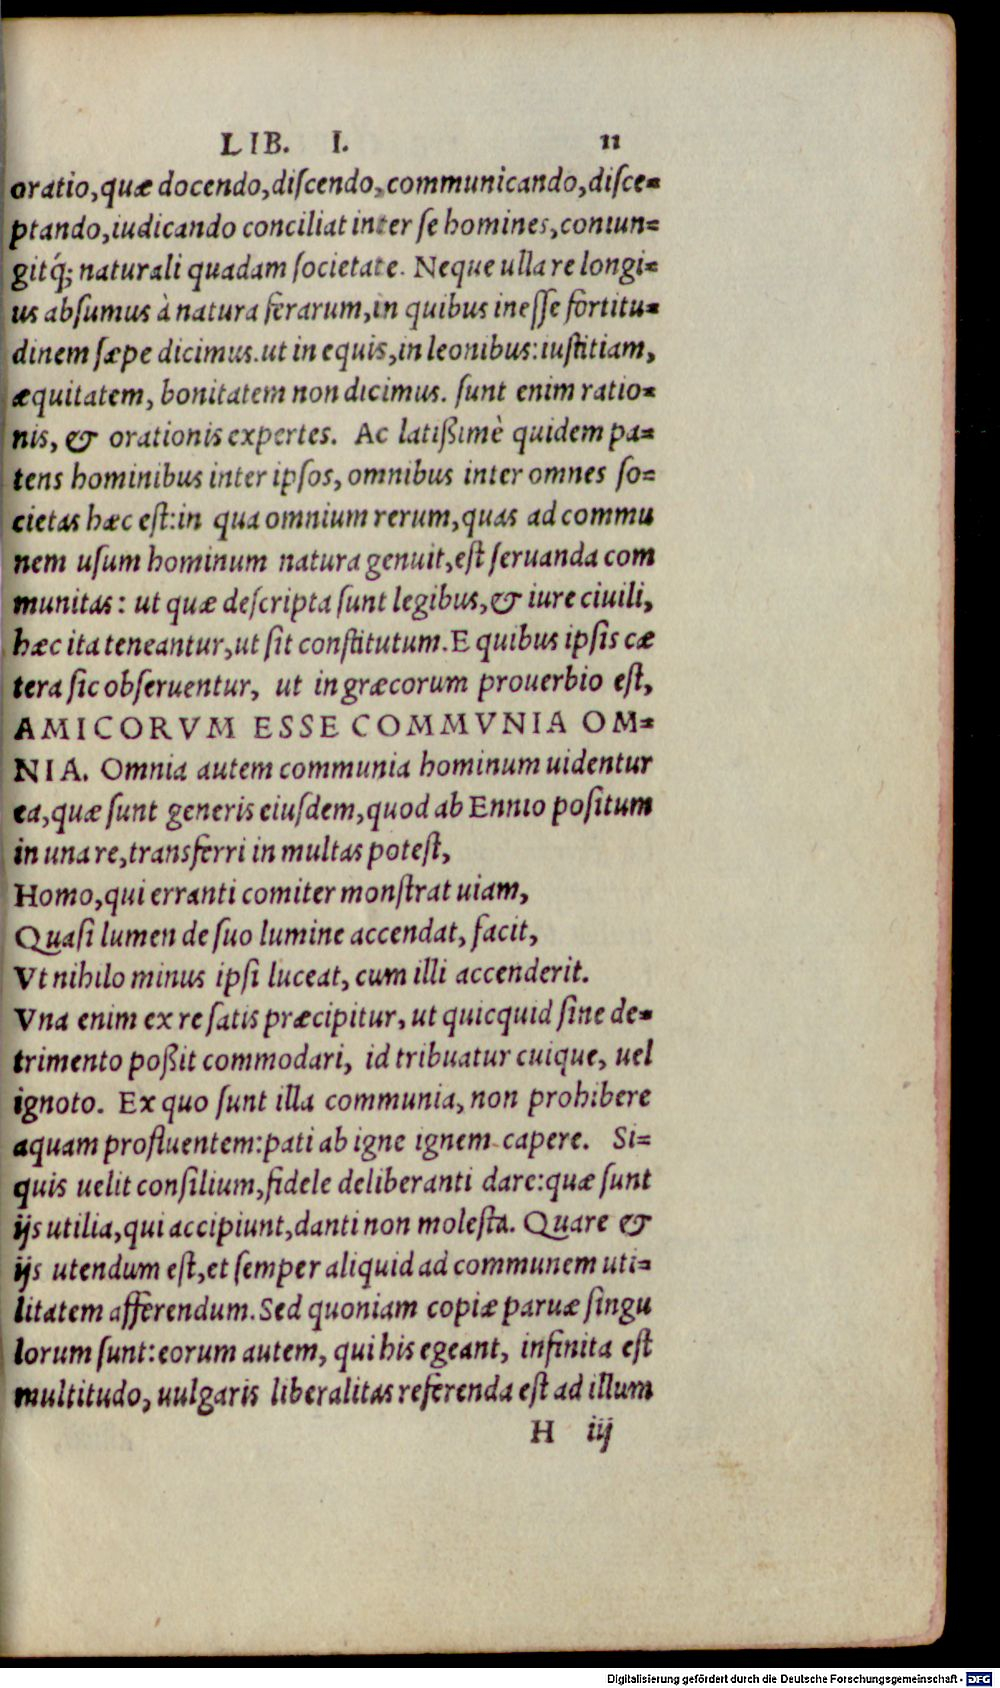 LIB. I. 11
oratio,quæ docendo,diſcendo,communicando,diſce=
ptando,iudicando conciliat inter ſe homines,coniun=
gitq́; naturali quadam ſocietate. Neque ulla re longi=
us abſumus à natura ferarum,in quibus ineſſe fortitu=
dinem ſæpe dicimus.ut in equis,in leonibus:iuſtitiam,
æquitatem, bonitatem non dicimus. ſunt enim ratio=
nis, & orationis expertes. Ac latißimè quidem pa=
tens hominibus inter ipſos, omnibus inter omnes ſo=
cietas hæc eſt:in qua omnium rerum,quas ad commu
nem uſum hominum natura genuit,eſt ſeruanda com
munitas: ut quæ deſcripta ſunt legibus,& iure ciuili,
hæc ita teneantur,ut ſit conſtitutum.E quibus ipſis cæ
tera ſic obſeruentur, ut in græcorum prouerbio eſt,
AMICORVM ESSE COMMVNIA OM=
NIA. Omnia autem communia hominum uidentur
ea,quæ ſunt generis eiuſdem,quod ab Ennio poſitum
in una re,transferri in multas poteſt,
Homo,qui erranti comiter monſtrat uiam,
Quaſi lumen de ſuo lumine accendat, facit,
Vt nihilo minus ipſi luceat, cum illi accenderit.
Vna enim ex re ſatis præcipitur, ut quicquid ſine de=
trimento poßit commodari, id tribuatur cuique, uel
ignoto. Ex quo ſunt illa communia, non prohibere
aquam profluentem:pati ab igne ignem capere. Si=
quis uelit conſilium,fidele deliberanti dare:quæ ſunt
ijs utilia,qui accipiunt,danti non moleſta. Quare &
ijs utendum eſt,et ſemper aliquid ad communem uti=
litatem afferendum.Sed quoniam copiæ paruæ ſingu
lorum ſunt:eorum autem, qui his egeant, infinita eſt
multitudo, uulgaris liberalitas referenda eſt ad illum
H iij
Digitalisierung gefördert durch die Deutsche Forschungsgemeinschaft - DFG